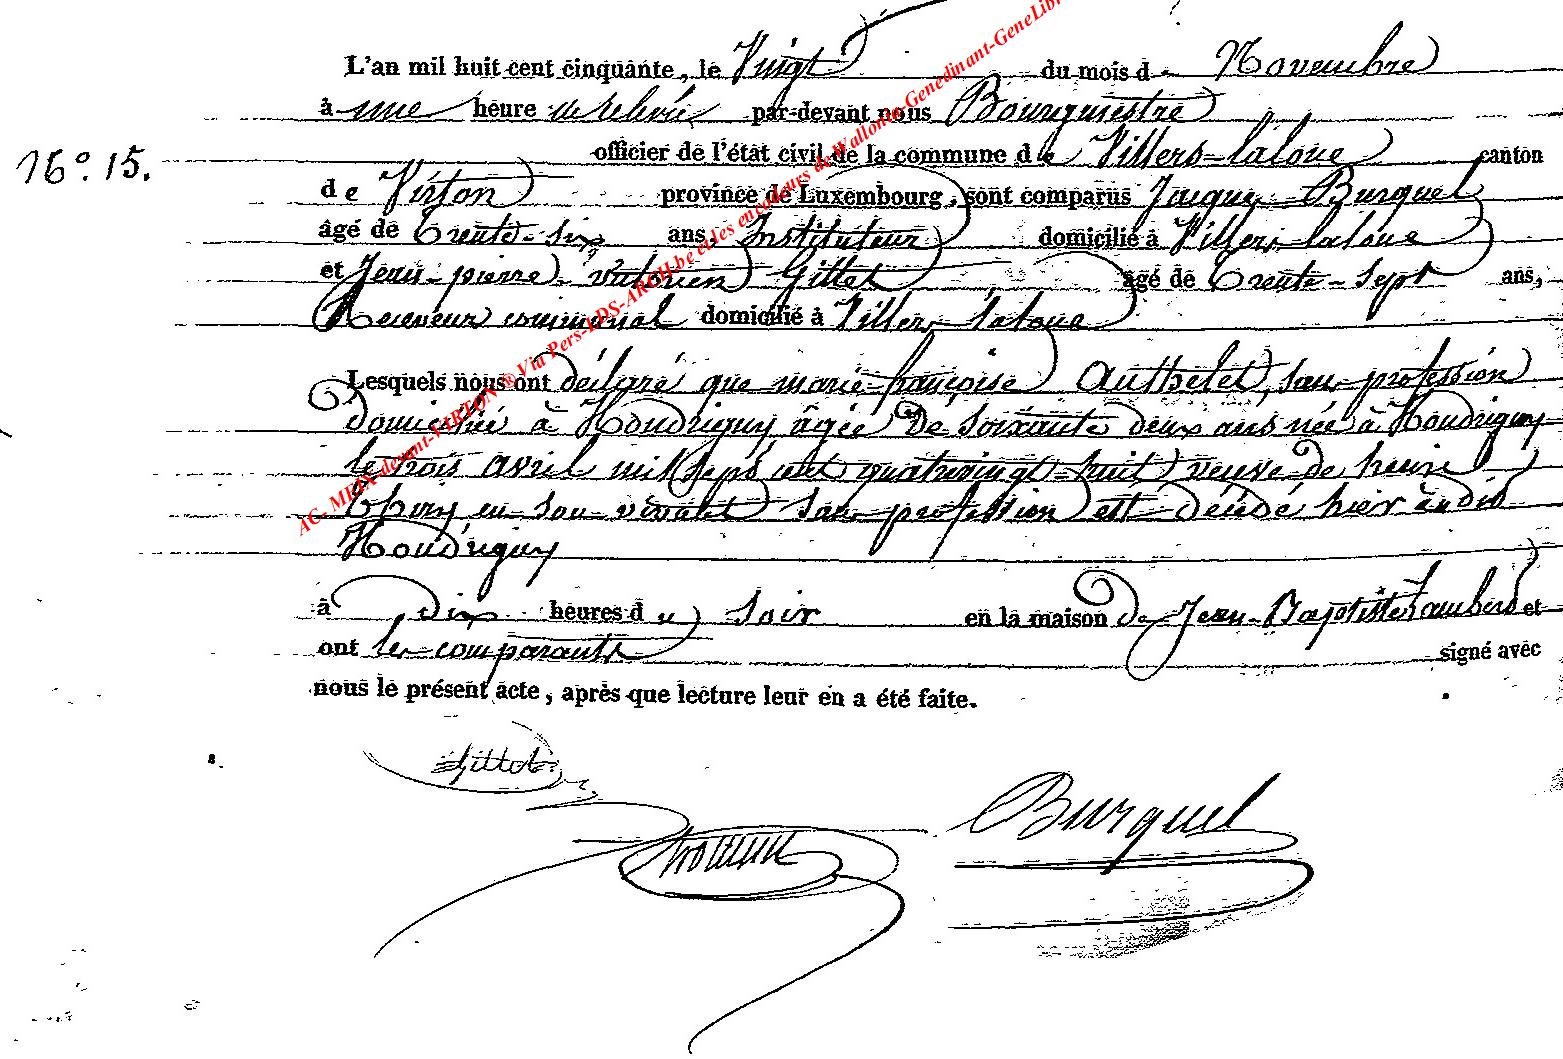 L'an mil huit cent cinquante, le Vingt du mois de Novembre
à une heure de relevée par-devant nous Bourgmestre
officier de l'état civil de la commune de Villers-laloue canton
N.º 15.
de Virton province de Luxembourg, sont comparus Jacques Burquel
âgé de trente-six ans, Instituteur domicilié à Villers-laloue
et Jean-pierre Gillet âgé de trente-sept ans,
Receveur communal domicilié à Villers-laloue
Lesquels nous ont déclaré que marie-françoise Authelet, sans profession
domiciliée à Houdrigny âgée de soixante deux ans née à Houdrigny
le trois avril mil sept cent quatrevingt-huit veuve de henri
Thiry en son vivant sans profession est décédé hier au dit
Houdrigny
à dix heures du soir en la maison de Jean-Baptiste Lambert et
ont les comparants signé avec
nous le présent acte, après que lecture leur en a été faite.
Gillet
Burquel
AC- MEIX-devant-VIRTON ® Via Pers-LDS-ARCH.be et les encodeurs de Wallonia-Genedinant-GeneLib